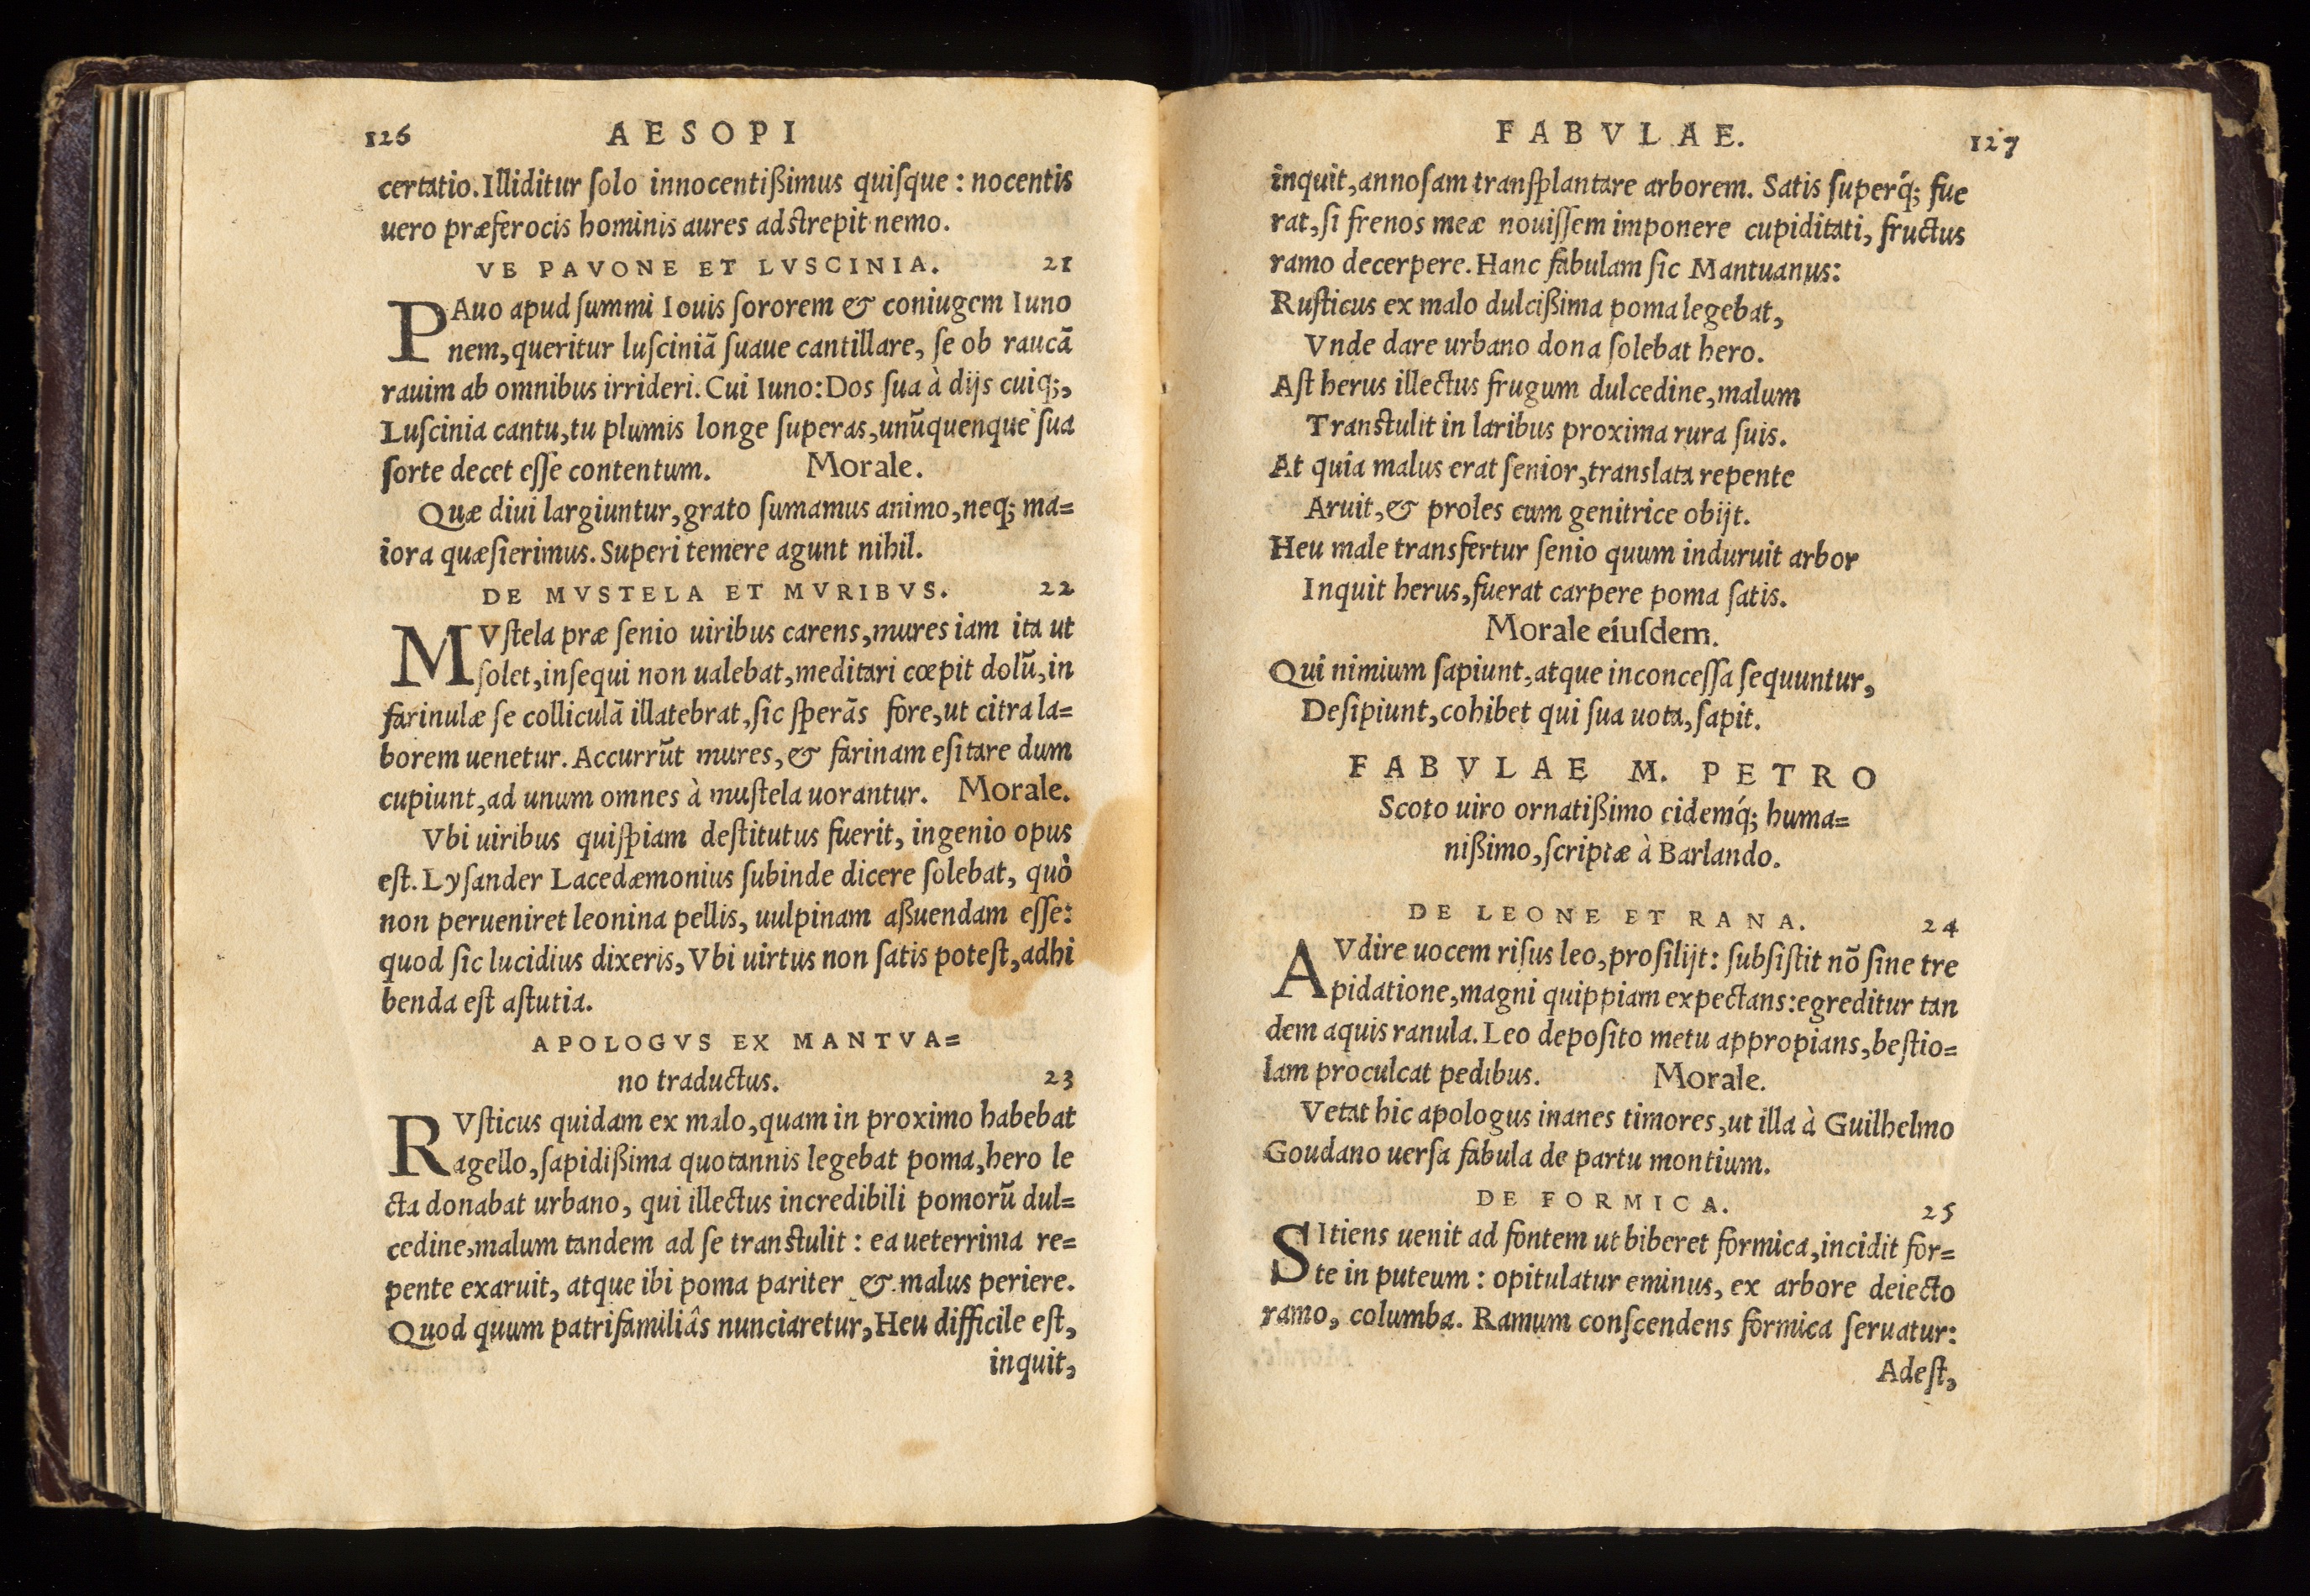 126 AESOPI
certatio. Illiditur ſolo innocentißimus quiſque : nocentis
uero præferocis hominis aures adstrepit nemo.
VE PAVONE ET LVSCINIA. 21
PAuo apud ſummi Iouis ſororem & coniugem Iuno
nem, queritur luſciniā ſuaue cantillare, ſe ob raucā
rauim ab omnibus irrideri. Cui Iuno: Dos ſua à dijs cuiq;,
Luſcinia cantu, tu plumis longe ſuperas, unūquenque ſua
ſorte decet eſſe contentum. Morale.
Quæ diui largiuntur, grato ſumamus animo, neq; ma=
iora quæſierimus. Superi temere agunt nihil.
DE MVSTELA ET MVRIBVS. 22
MVſtela præ ſenio uiribus carens, mures iam ita ut
ſolet, inſequi non ualebat, meditari cœpit dolū, in
farinulæ ſe colliculā illatebrat, ſic ſperās fore, ut citra la=
borem uenetur. Accurrūt mures, & farinam eſitare dum
cupiunt, ad unum omnes à muſtela uorantur. Morale.
Vbi uiribus quiſpiam deſtitutus fuerit, ingenio opus
eſt. Lyſander Lacedæmonius ſubinde dicere ſolebat, quò
non perueniret leonina pellis, uulpinam aßuendam eſſe:
quod ſic lucidius dixeris, Vbi uirtus non ſatis poteſt, adhi
benda eſt aſtutia.
APOLOGVS EX MANTVA=
no traductus. 23
RVſticus quidam ex malo, quam in proximo habebat
agello, ſapidißima quotannis legebat poma, hero le
cta donabat urbano, qui illectus incredibili pomorū dul=
cedine, malum tandem ad ſe transtulit : ea ueterrima re=
pente exaruit, atque ibi poma pariter & malus periere.
Quod quum patrifamiliâs nunciaretur, Heu difficile eſt,
inquit,
FABVLAE. 127
inquit, annoſam tranſplantare arborem. Satis ſuperq́; fue
rat, ſi frenos meæ nouiſſem imponere cupiditati, fructus
ramo decerpere. Hanc fabulam ſic Mantuanus:
Ruſticus ex malo dulcißima poma legebat,
Vnde dare urbano dona ſolebat hero.
Aſt herus illectus frugum dulcedine, malum
Transtulit in laribus proxima rura ſuis.
At quia malus erat ſenior, translata repente
Aruit, & proles cum genitrice obijt.
Heu male transfertur ſenio quum induruit arbor
Inquit herus, fuerat carpere poma ſatis.
Morale eiuſdem.
Qui nimium ſapiunt, atque inconceſſa ſequuntur,
Deſipiunt, cohibet qui ſua uota, ſapit.
FABVLAE M. PETRO
Scoto uiro ornatißimo eidemq́; huma=
nißimo, ſcriptæ à Barlando.
DE LEONE ET RANA. 24
AVdire uocem riſus leo, proſilijt : ſubſiſtit nō ſine tre
pidatione, magni quippiam expectans: egreditur tan
dem aquis ranula. Leo depoſito metu appropians, beſtio=
lam proculcat pedibus. Morale.
Vetat hic apologus inanes timores, ut illa à Guilhelmo
Goudano uerſa fabula de partu montium.
DE FORMICA. 25
SItiens uenit ad fontem ut biberet formica, incidit for=
te in puteum : opitulatur eminus, ex arbore deiecto
ramo, columba. Ramum conſcendens formica ſeruatur:
Adeſt,